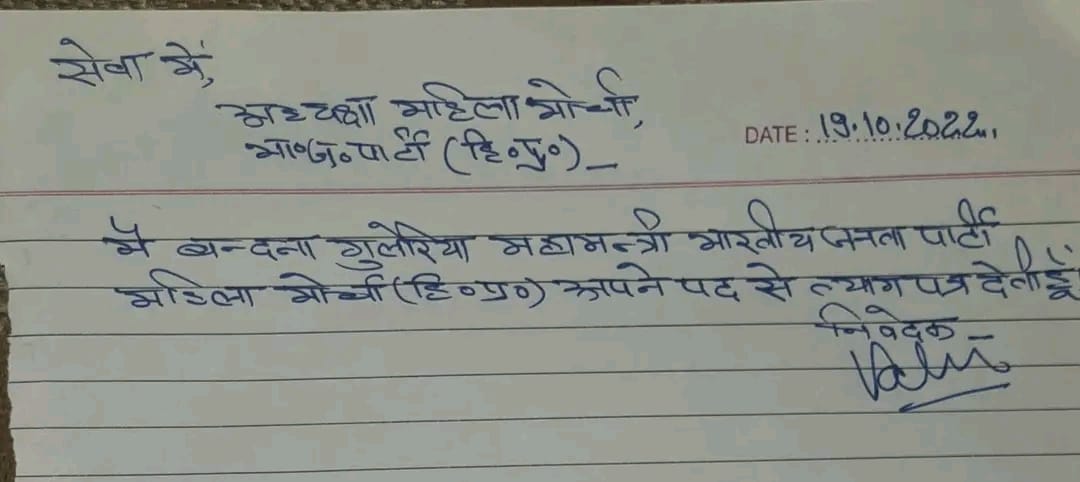 सेवा में,
अध्यक्षा महिला मोर्चा,
भा०ज०पार्टी (हि०प्र०)_
DATE: 19.10.2022
मैं बन्दना गुलेरिया महामन्त्री भारतीय जनता पार्टी
महिला मोर्चा (हि०प्र०) अपने पद से त्याग पत्र देती हूँ
निवेदक -